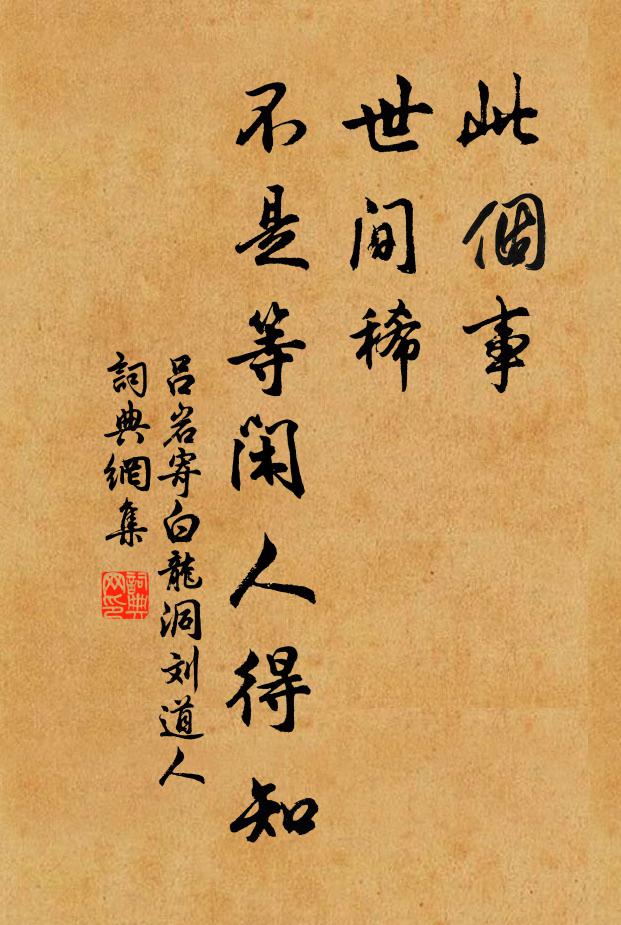 此個事
世间稀
不是等闲人得知
吕岩寄白龍洞刘道人
詞典網集
詞典网印